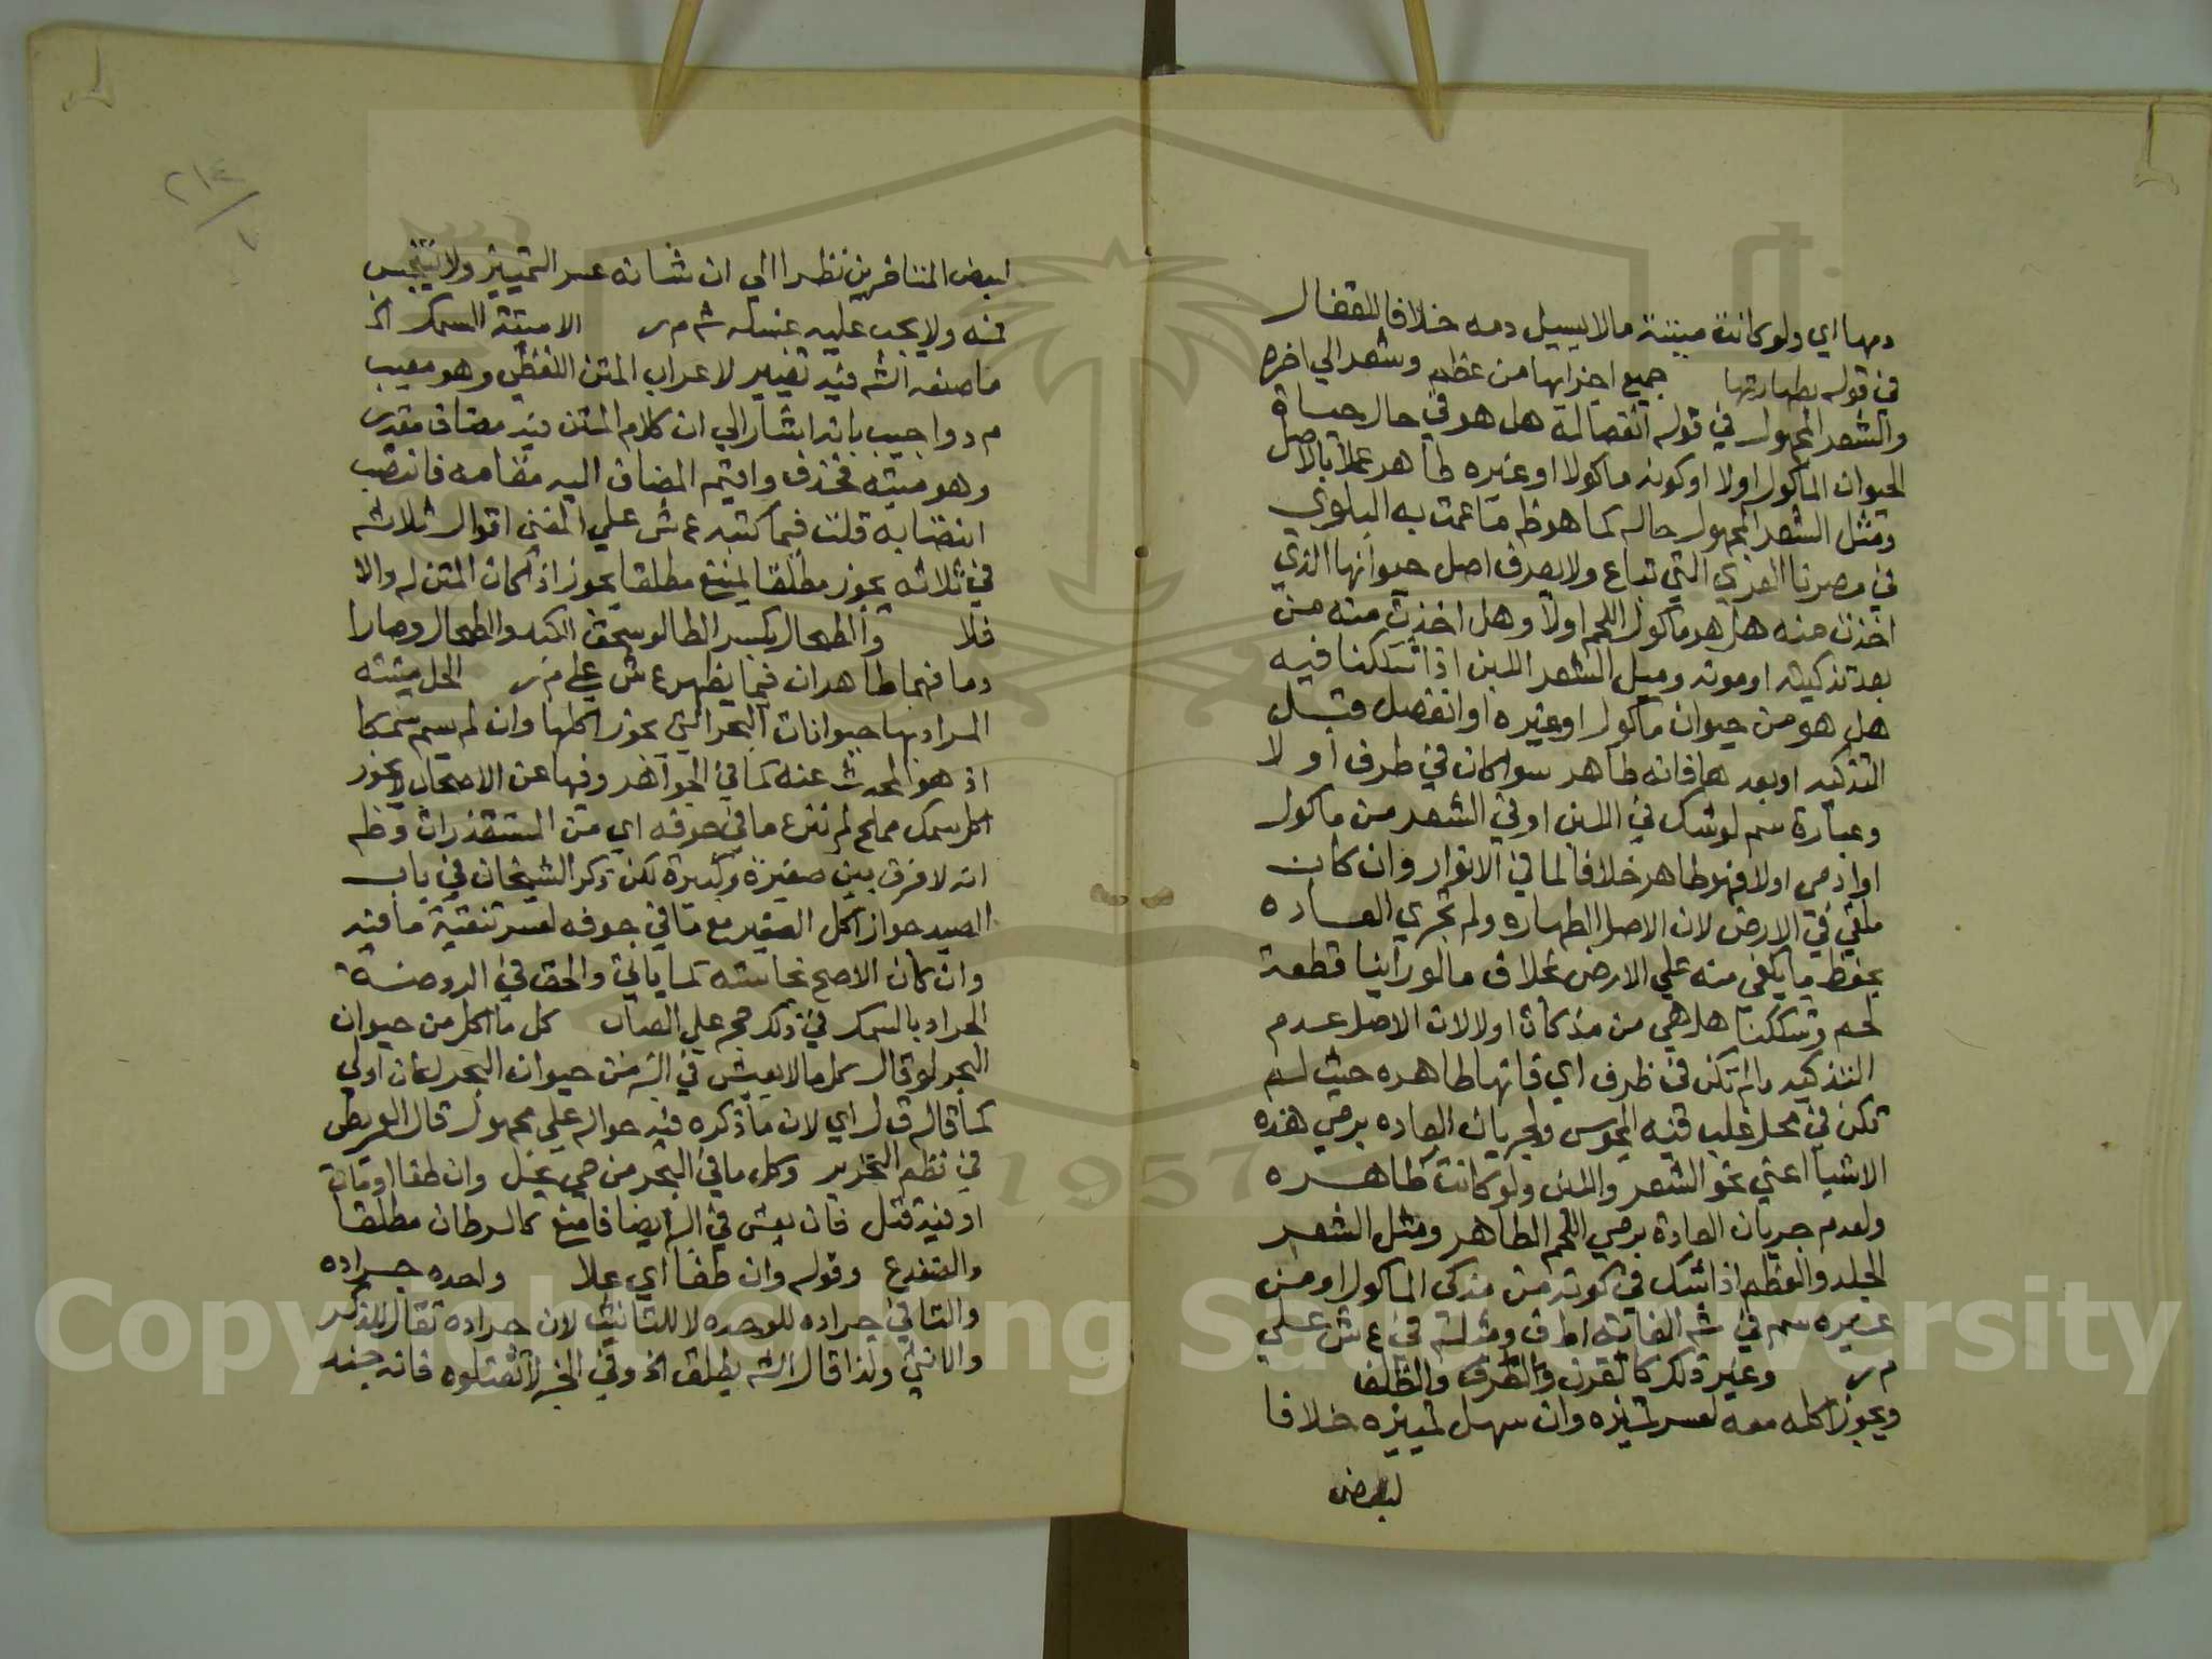 دمها اي ولو كانت ميتة مالا يسيل دمه خلافا للقفال
في قوله بطهارتها جميع اجزايها من عظم وشعر الي اخره
والشعر المجهول في قوله انفصاله هل هو في حال حياة
الحيوان الماكول اولا او كونه ماكولا او غيره طاهر عملا بالاصل
ومثل الشعر المجهول حاله كما هو ظ ما عمت به البلوي
في مصرنا الفري التي تباع ولا يعرف اصل حيوانها الذي
اخذت منه هل هو ماكول اللحم اولا وهل اخذت منه من
بعد تذكيته او موته ومثل الشعر اللبن اذا شككنا فيه
هل هو من حيوان ماكول او غيره او انفصل قبل
التذكيه او بعدها فانه طاهر سوا كان في ظرف او لا
وعبارة سم لو شك في اللبن او في الشعر من ماكول
او ادمي اولا فهو طاهر خلافا لما في الانوار وان كان
ملقي في الارض لان الاصل الطهاره ولم تجري العاده
بحفظ ما يلقي منه علي الارض بخلاف ما لو راينا قطعة
لحم وشككنا هل هي من مذكاة اولا لان الاصل عدم
التذكيه ما لم تكن في ظرف اي فانها طاهره حيث لم
تكن في محل غلب فيه المجوس ولجريان العاده برمي هذه
الاشيا اعني نحو الشعر واللبن ولو كانت طاهره
ولعدم جريان العادة برمي اللحم الطاهر ومثل الشعر
الجلد والعظم اذا شك في كونه من مذكي الماكول او من
غيره سم في شه الغاية اطف ومثله في ع ش علي
م ر وغير ذلك كالقرن والظفر والظلف
ويجوز اكله معه لعسر تمييزه وان سهل تمييزه خلافا
لبعض
لبعض المتاخرين نظرا الي ان شانه عسر التمييز ولا يتنجس
فمه ولا يجب عليه غسله شه م ر الا ميتة السمك الخ
ما صنعه الشه فيه تغيير لاعراب المتن اللفظي وهو معيب
م د واجيب بانه اشار الي ان كلام المتن فيه مضاف مقدر
وهو ميتة فحذف واقيم المضاف اليه مقامه فانتصب
انتصابه قلت فيما كتبه ع ش علي المغني اقوال ثلاثه
في ثلاثه يجوز مطلقا يمتنع مطلقا يجوز اذا كان المتن له والا
فلا والطحال بكسر الطا لو سحق الكبد والطحال وصارا
دما فهما طاهران فيما يظهر ع ش علي م ر الحل ميتته
المراد بها حيوانات البحر التي يجوز اكلها وان لم يسم سمكا
اذ هو المحدث عنه كما في الجواهر وفيها عن الاصحاب لا يجوز
اكل سمك مملح لم ننزع ما في جوفه اي من المستقذرات وظ
انه لا فرق بين صغيرة وكبيرة لكن ذكر الشيخان في باب
الصيد جواز اكل الصغير مع ما في جوفه لعسر تنقية ما فيه
وان كان الاصح نجاسته كما ياتي والحق في الروضة
الجراد بالسمك في ذلك حج علي العباب كل ما اكل من حيوان
البحر لو قال كل ما لا يعيش في البر من حيوان البحر لكان اولي
كما قاله ق ل اي لان ما ذكره فيه حواله علي مجهول قال العريطي
في نظم التحرير وكل ما في البحر من حي يحل وان طفا او مات
او فيه قتل فان يعش في البر ايضا فامنع كالسرطان مطلقا
والضفدع وقوله وان طفا اي علا واحده جراده
والتا في جراده للوحده لا للتانيث لان جراده تقال للذكر
والانثي ولذا قال الشه يطلق الخ وفي الخبر لا تقتلوه فانه جند
٢١٤